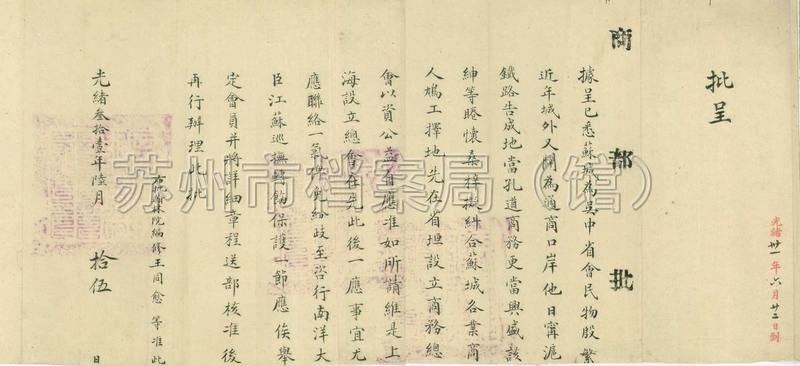 光緒卅一年六月廿二日到
批呈
商部批
據呈已悉蘇城為吳中省會民物殷繁
近年城外又闢為通商口岸他日甯滬
鐵路告成地當孔道商務更當興盛該
紳等睠懷桑梓擬糾合蘇城各業商
人鳩工擇地先在省垣設立商務總
會以資公益自應准如所請維是上
海設立總會在先此後一應事宜尤
應聯絡一氣俾免紛歧至咨行南洋大
臣江蘇巡撫轉飭保護一節應俟舉
定會員并將詳細章程送部核准後
再行辦理此批
右批翰林院編修王同愈等准此
光緒叁拾壹年陸月拾伍日
苏州市档案局(馆)